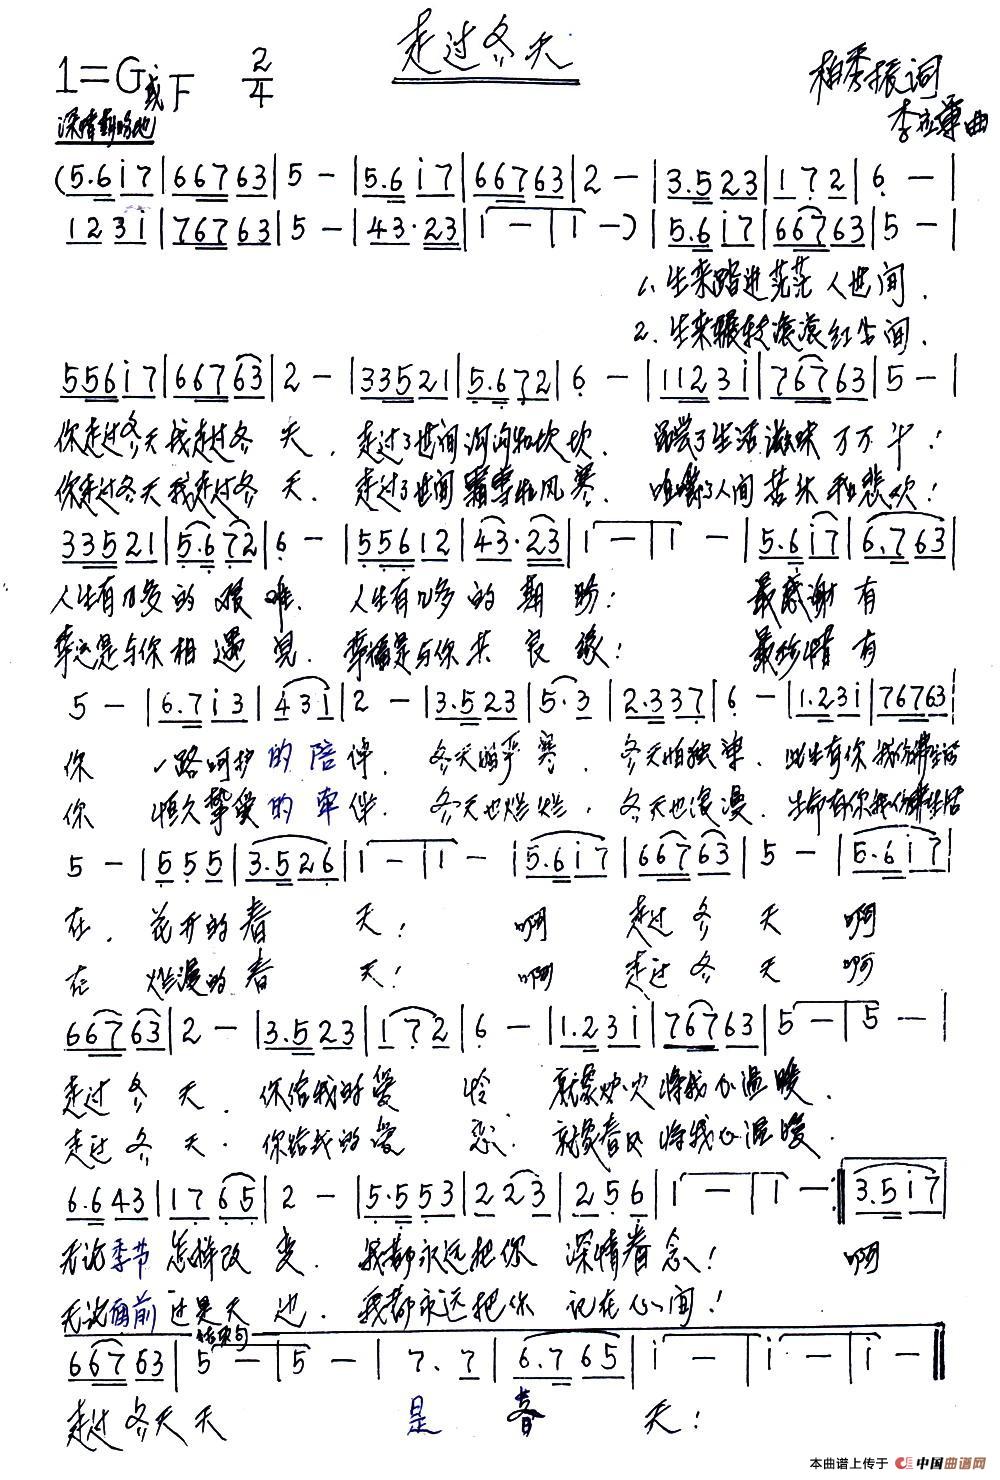 走过冬天
1=G或F 2/4
柏秀振词
李宝军曲
(5.6i7|66763|5-|5.6i7|66763|2-|3.523|172|6-|
123i|76763|5-|43.23|i-|i-)|5.6i7|66763|5-|
1、生来踏进茫茫人世间.
2.生来辗转滚滚红尘间.
556i7|66763|2-|33521|5.672|6-|1123i|76763|5-|
你走过冬天我走过冬天.走过了世间沟沟和坎坎 品尝了生活滋味万万千!
你走过冬天我走过冬天.走过了世间霜雪和风寒.咀嚼了人间苦乐和悲欢!
33521|5.672|6-|55612|43.23|1-|1-|5.6i7|6.763|
人生有几多的艰难.人生有几多的期盼! 最感谢有
幸运是与你相遇见.幸福是与你共良缘! 最珍惜有
5-|6.7i3|43i|2-|3.523|5.3|2.337|6-|1.23i|76763|
你 一路呵护的陪伴.冬天的严寒.冬天怕独单.此生有你我仿佛生活
你 恒久挚爱的牵伴.冬天也烂烂.冬天也浪漫.生命有你我仿佛生活
5-|555|3.526|1-|1-|5.6i7|66763|5-|5.6i7|
在.花开的春天! 啊 走过冬天 啊
在 烂漫的春天! 啊 走过冬天 啊
66763|2-|3.523|172|6-|1.23i|76763|5-|5-|
走过冬天.你给我的爱怜.就像炉火将我心温暖.
走过冬天.你给我的爱恋.就象春风将我心温暖.
6.643|1765|2-|5.553|223|256|1-|1-:‖3.5i7|
无论季节怎样改变.我都永远把你深情眷念! 啊
无论面前还是天边.我都永远把你记在心间!
结束句
66763|5-|5-|7.7|6.765|i-|-|i-|i-‖
走过冬天天 是春天!
本曲谱上传于 中国曲谱网